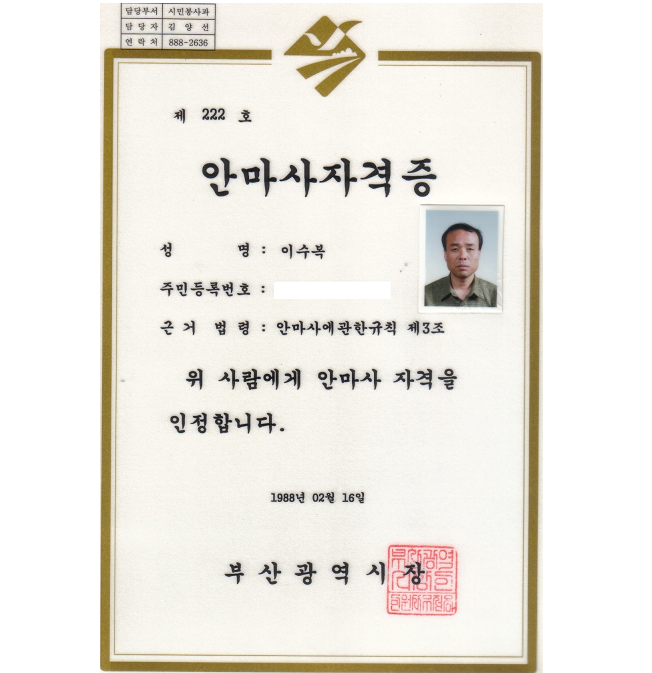 담당부서 시민봉사과
담당자 김양선
연락처 888-2636
제 222 호
안마사자격증
성 명 : 이수복
주민등록번호 :
근거 법령 : 안마사에관한규칙 제3조
위 사람에게 안마사 자격을
인정합니다.
1988년 02월 16일
부산광역시장